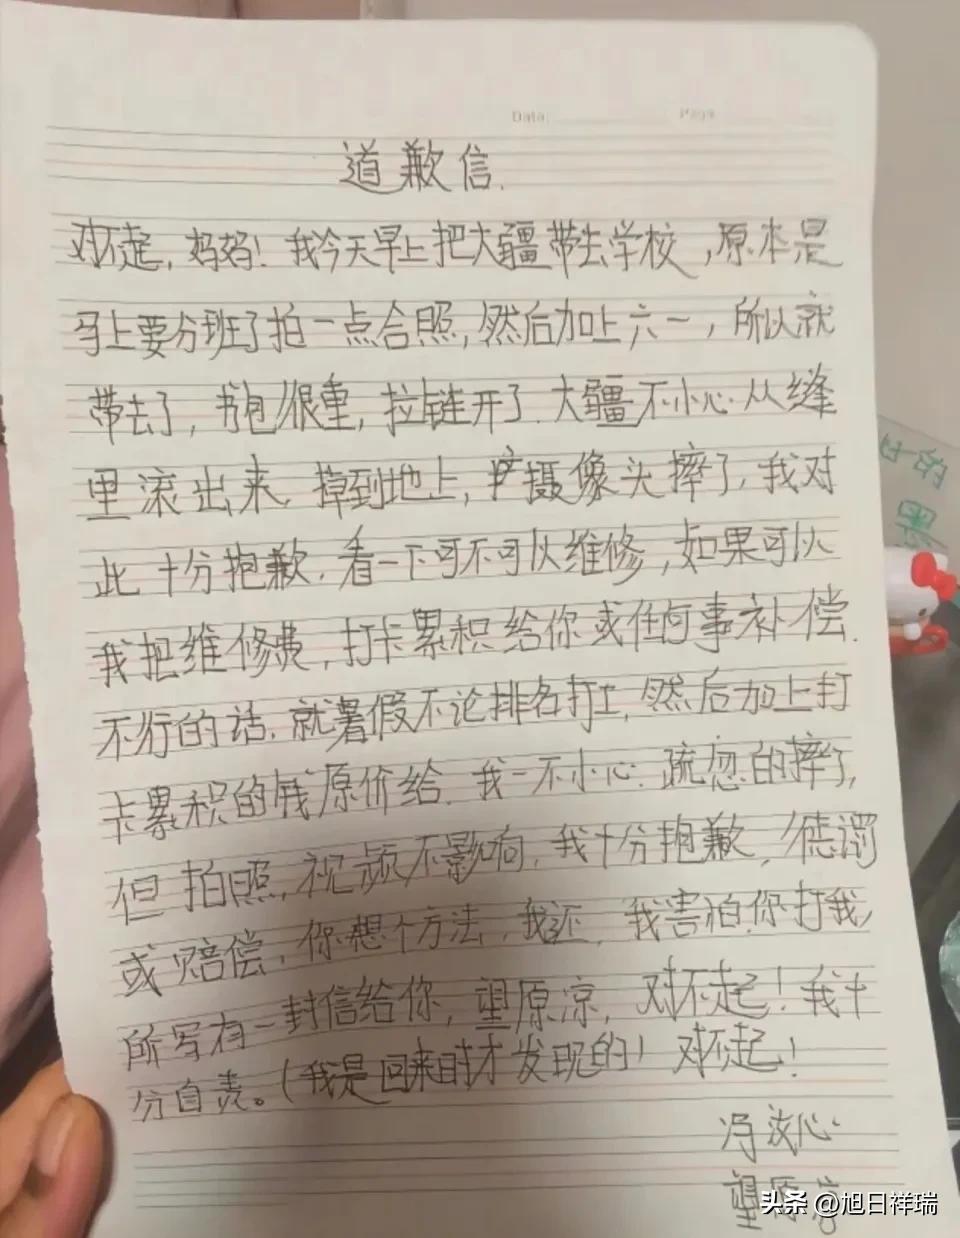 Date:
Page
道歉信.
对不起，妈妈！我今天早上把大疆带去学校，原本是
马上要分班了拍一点合照，然后加上六一，所以就
带去了，书包很重，拉链开了.大疆不小心从缝
里滚出来.掉到地上，摄像头摔了，我对
此十分抱歉.看一下可不可以维修，如果可以
我把维修费，打卡累积给你或任何事补偿.
不行的话.就暑假不论排名打工，然后加上打
卡累积的钱原价给.我一不小心疏忽的摔了，
但拍照，视频不影响，我十分抱歉，
或赔偿，你想个方法，我还，我害怕你打我，
所写有一封信给你，望原凉，对不起！我十
分自责。（我是回来时才发现的！对不起！
冯 心
望原
头条 @旭日祥瑞